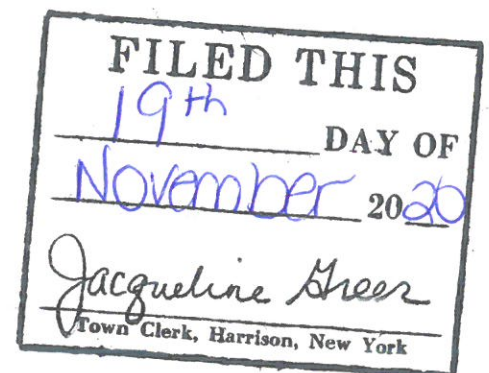 FILED THIS
19th
DAY OF
November 2020
Jacqueline Greer
Town Clerk, Harrison, New York